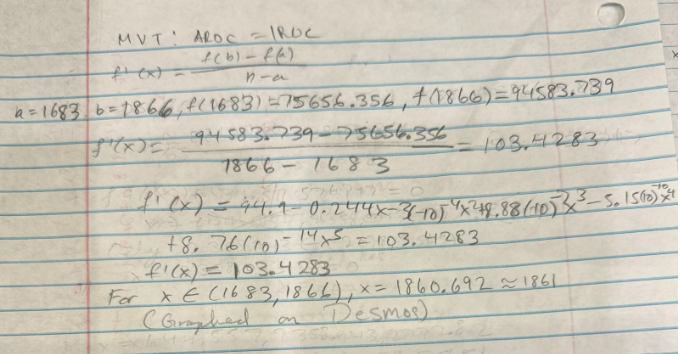 MVT: AROC = IROC
f'(x) = f(b) - f(a) / b-a
a=1683, b=1866, f(1683)=75656.356, f(1866)=94583.739
f'(x) = 94583.739 - 75656.356 / 1866 - 1683 = 103.4283
f'(x) = 94.9 - 0.244x - 3(10)^-4x^2 + 9.88(10)^-7x^3 - 5.15(10)^-10x^4
+8.76(10)^-14x^5 = 103.4283
f'(x) = 103.4283
For x ∈ (1683, 1866), x = 1860.692 ≈ 1861
(Graphed on Desmos)